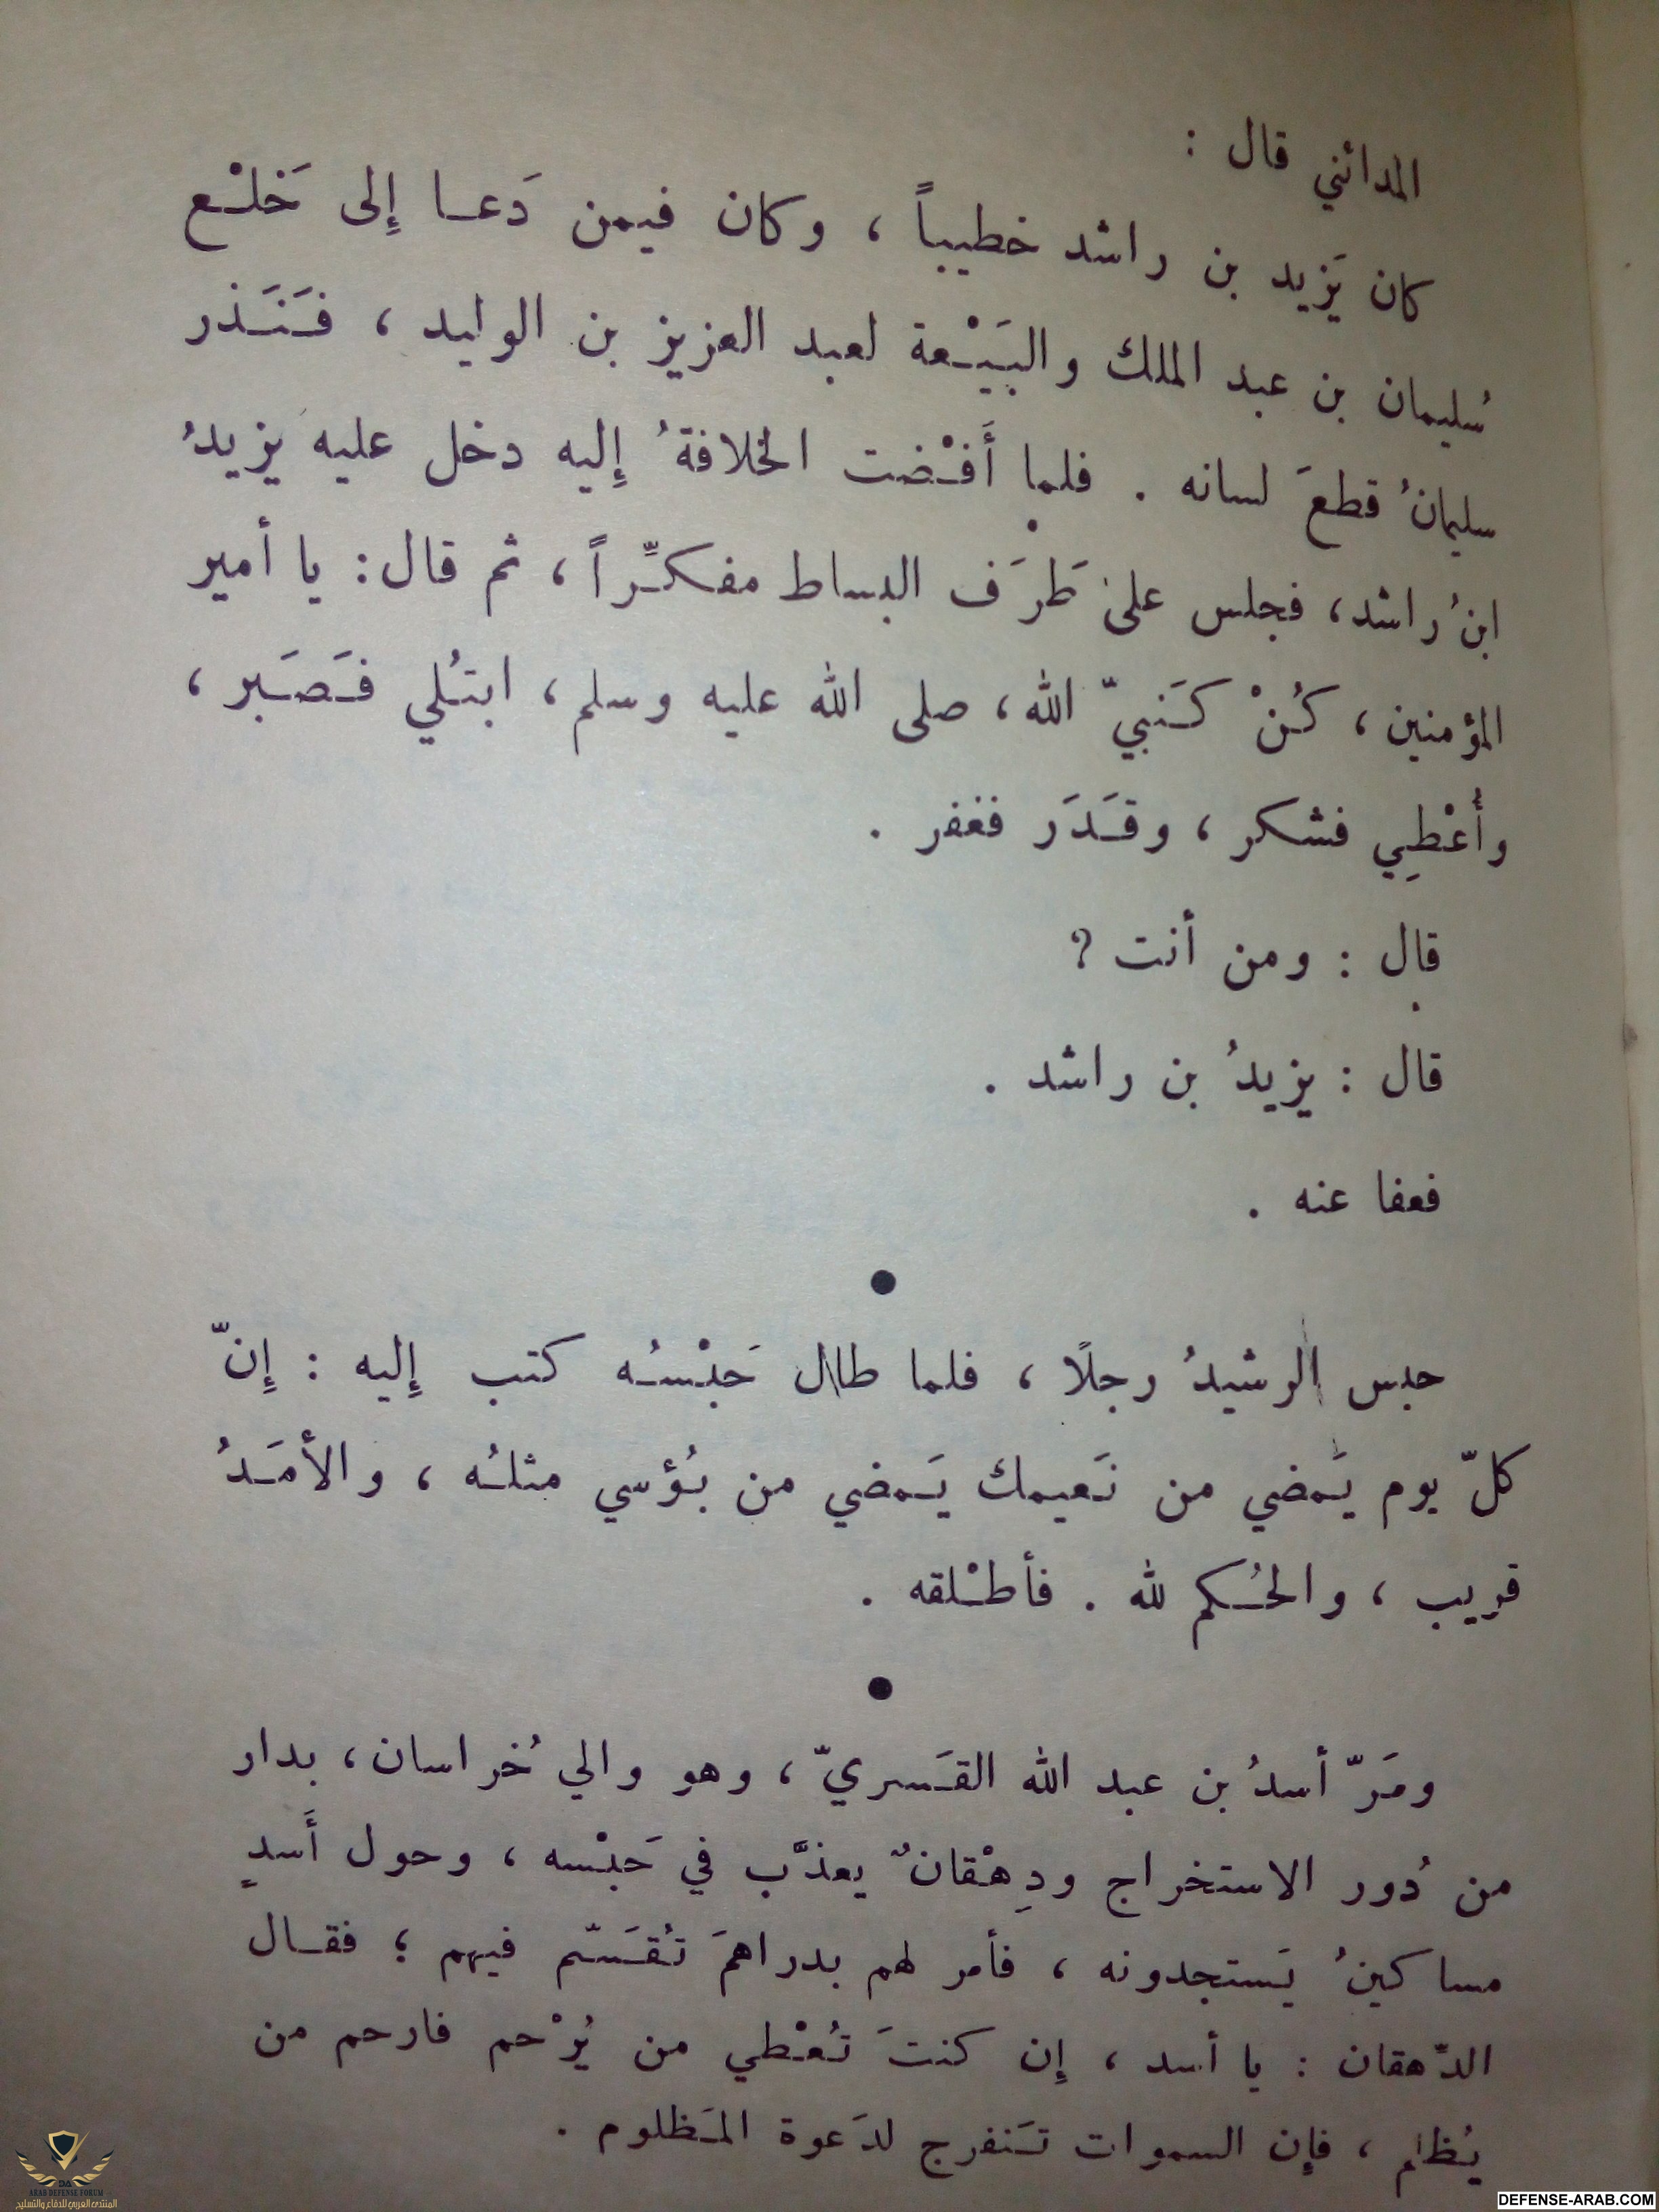 المدائني قال :
كان يَزيد بن راشد خطيباً ، وكان فيمن دَعا إِلى خَلْع
سُليمان بن عبد الملك والبَيْعة لعبد العزيز بن الوليد ، فَنَذر
سليمانُ قطعَ لسانه . فلما أَفْضت الخلافةُ إِليه دخل عليه يزيدُ
ابنُ راشد ، فجلس على طَرَف البساط مفكِّراً ، ثم قال : يا أمير
المؤمنين ، كُنْ كَنبيّ الله ، صلى الله عليه وسلم ، ابتُلي فَصَبر ،
وأُعْطِي فشكر ، وقَدَر فغفر .
قال : ومن أنت ؟
قال : يزيدُ بن راشد .
فعفا عنه .
●
حبس الرشيدُ رجلًا ، فلما طال حَبْسُه كتب إِليه : إِنّ
كلّ يوم يَمضي من نَعيمك يَمضي من بُؤسي مثلُه ، والأمَدُ
قريب ، والحُكم لله . فأطْلقه .
●
ومَرّ أسدُ بن عبد الله القَسريّ ، وهو والي خُراسان ، بدار
من دُور الاستخراج ودِهْقانٌ يعذَّب في حَبْسه ، وحول أَسدٍ
مساكينُ يَستجدونه ، فأمر لهم بدراهمَ تُقَسّم فيهم ؛ فقال
الدّهقان : يا أسد ، إِن كنتَ تُعْطي من يُرْحم فارحم من
يُظلم ، فإِن السموات تَنفرج لدَعوة المَظلوم .
ARAB DEFENSE FORUM
المنتدى العربي للدفاع والتسليح
DEFENSE-ARAB.COM